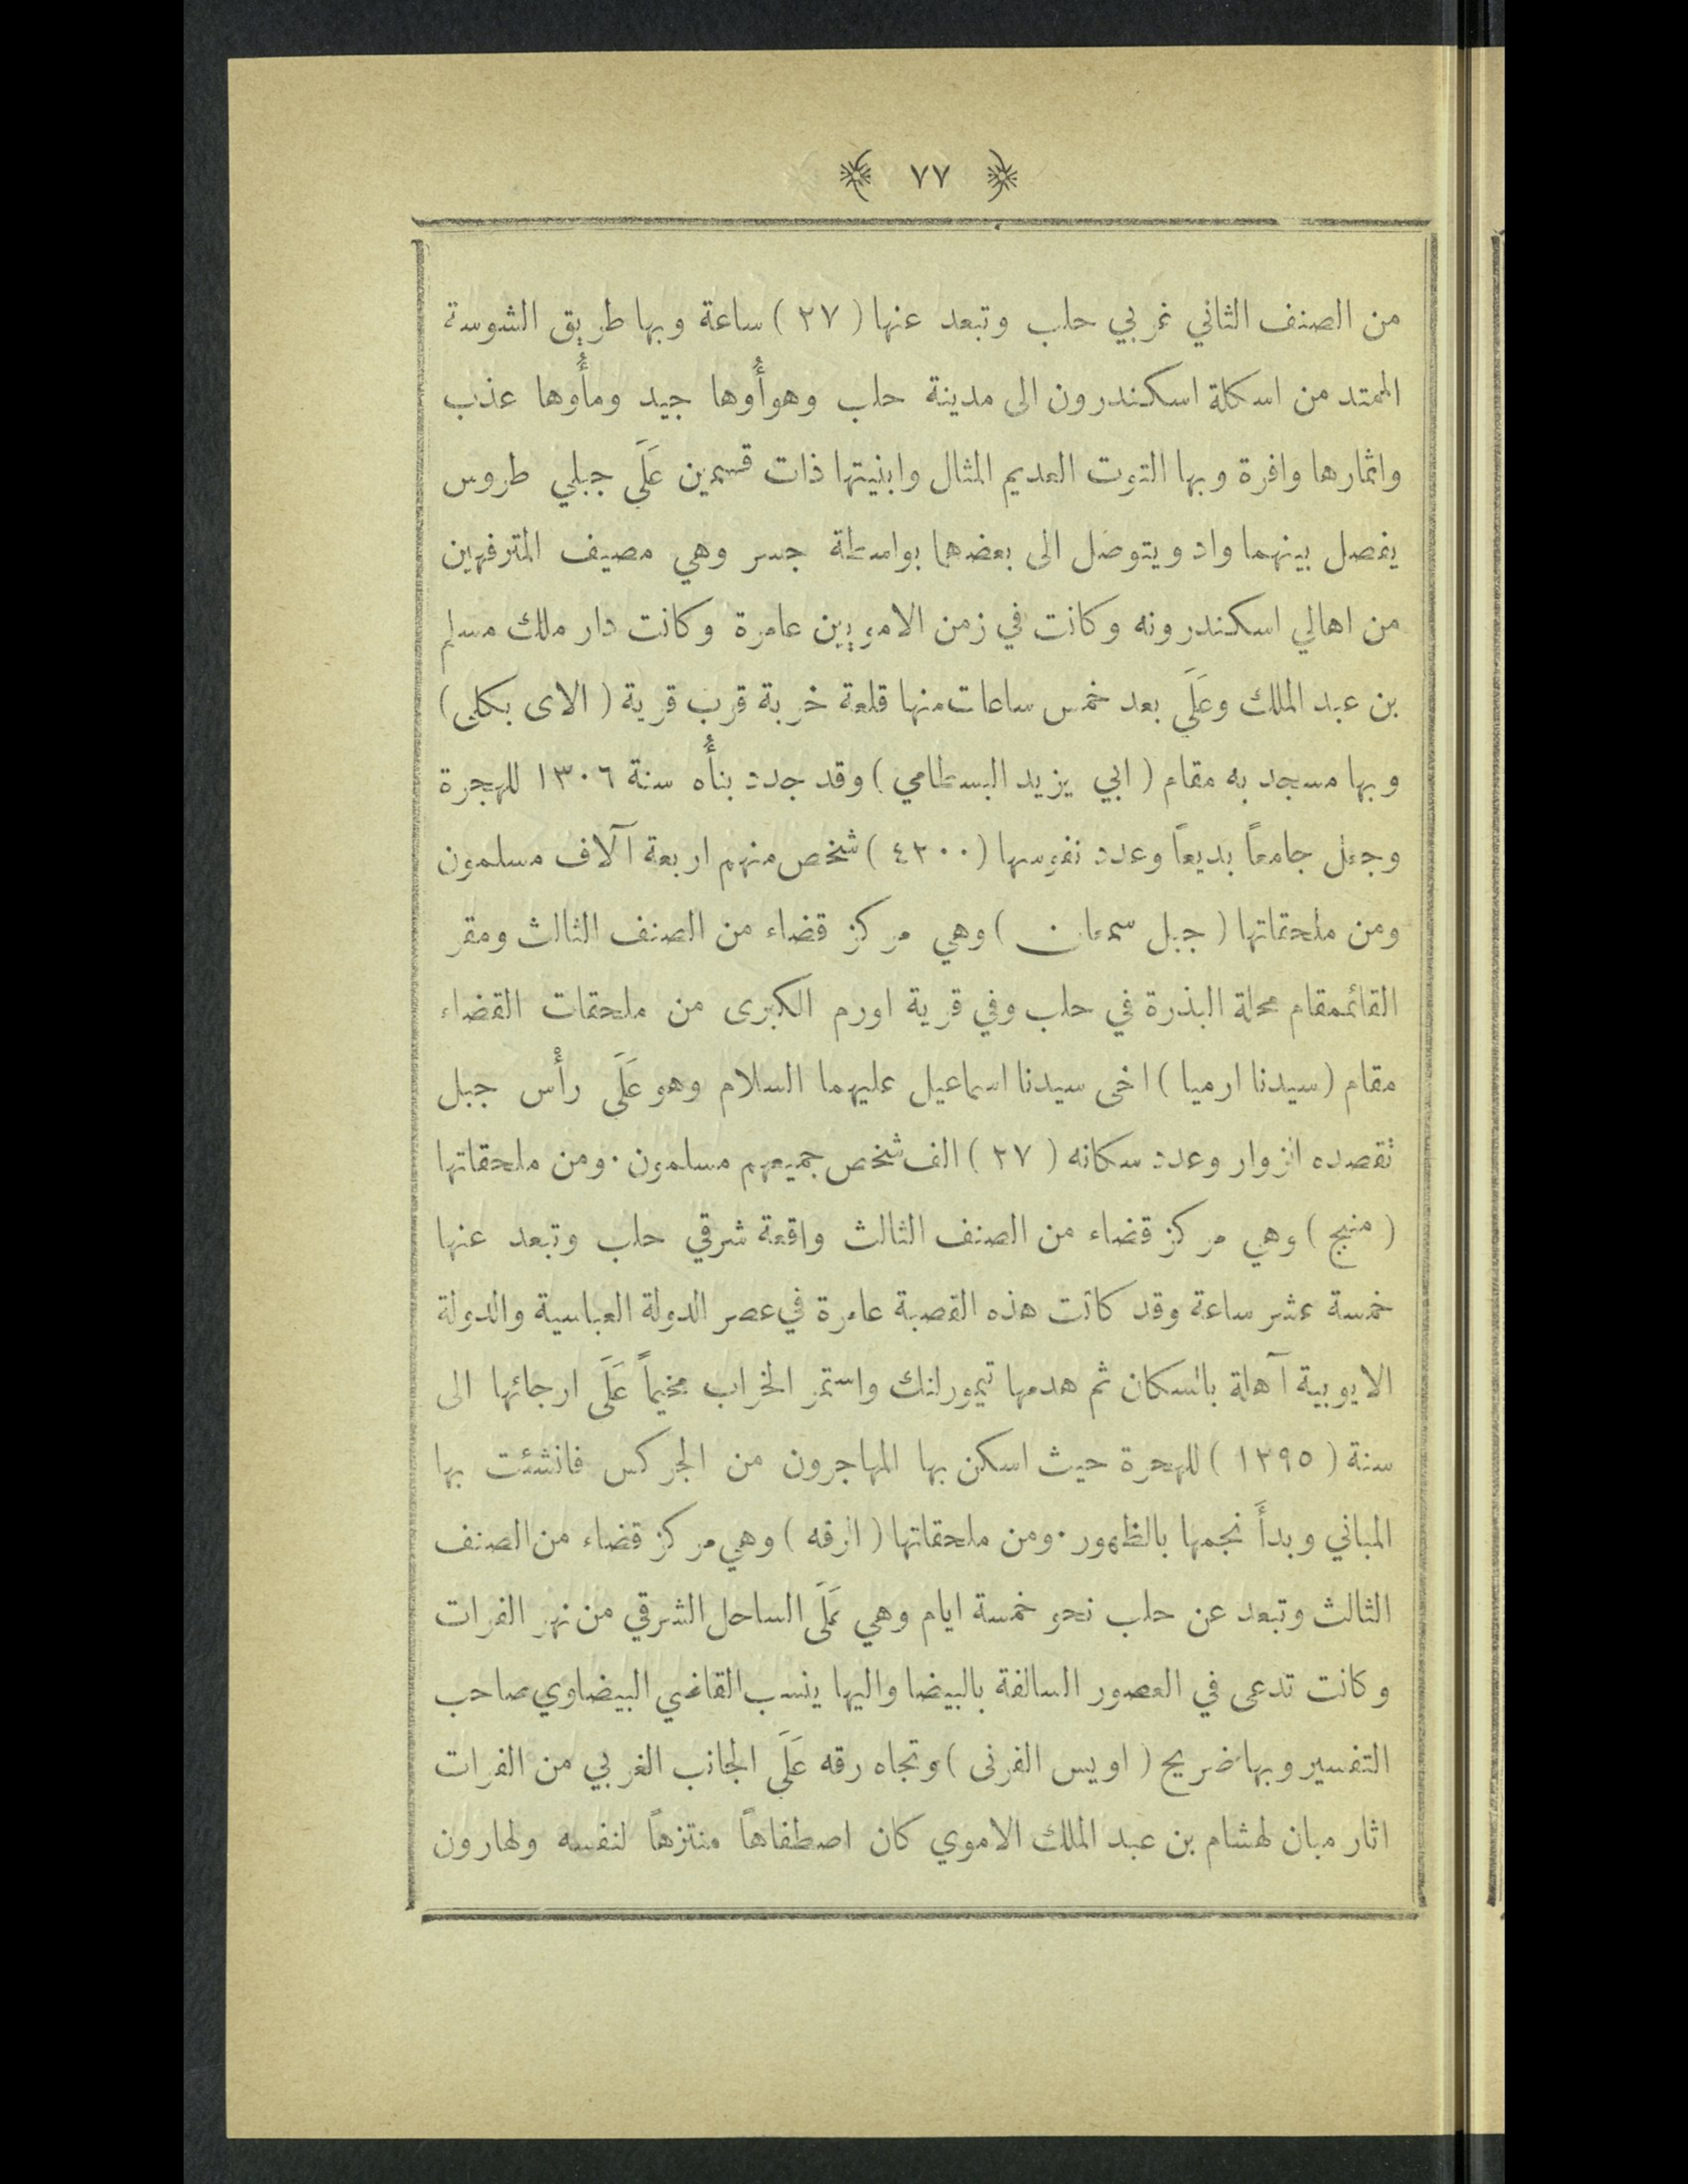 ﴿ ٧٧ ﴾
من الصنف الثاني غربي حلب وتبعد عنها ( ٢٧ ) ساعة وبها طريق الشوسة
الممتد من اسكلة اسكندرون الى مدينة حلب وهوأُوها جيد ومأُوها عذب
واثمارها وافرة وبها التوت العديم المثال وابنيتها ذات قسمين عَلَى جبلي طروس
يفصل بينهما واد ويتوصل الى بعضهما بواسطة جسر وهي مصيف المترفهين
من اهالي اسكندرونه وكانت في زمن الامويين عامرة وكانت دار ملك مسلم
بن عبد الملك وعَلَى بعد خمس ساعات منها قلعة خربة قرب قرية ( الاى بكلى )
وبها مسجد به مقام ( ابي يزيد البسطامي ) وقد جدد بنأُه سنة ١٣٠٦ للهجرة
وجعل جامعاً بديعاً وعدد نفوسها ( ٤٢٠٠ ) شخص منهم اربعة آلاف مسلمون
ومن ملحقاتها ( جبل سمعان ) وهي مركز قضاء من الصنف الثالث ومقر
القائممقام محلة البذرة في حلب وفي قرية اورم الكبرى من ملحقات القضاء
مقام ( سيدنا ارميا ) اخى سيدنا اسماعيل عليهما السلام وهو عَلَى رأْس جبل
تقصده الزوار وعدد سكانه ( ٢٧ ) الف شخص جميعهم مسلمون · ومن ملحقاتها
( منبج ) وهي مركز قضاء من الصنف الثالث واقعة شرقي حلب وتبعد عنها
خمسة عشر ساعة وقد كانت هذه القصبة عامرة في عصر الدولة العباسية والدولة
الايوبية آهلة بالسكان ثم هدمها تيمورلنك واستمر الخراب مخيماً عَلَى ارجائها الى
سنة ( ١٢٩٥ ) للهجرة حيث اسكن بها المهاجرون من الجركس فانشئت بها
المباني وبدأَ نجمها بالظهور · ومن ملحقاتها ( الرقه ) وهي مركز قضاء من الصنف
الثالث وتبعد عن حلب نحو خمسة ايام وهي عَلَى الساحل الشرقي من نهر الفرات
وكانت تدعى في العصور السالفة بالبيضا واليها ينسب القاضي البيضاوي صاحب
التفسير وبها ضريح ( اويس القرنى ) وتجاه رقه عَلَى الجانب الغربي من الفرات
اثار مبان لهشام بن عبد الملك الاموي كان اصطفاهاً منتزهاً لنفسه ولهارون